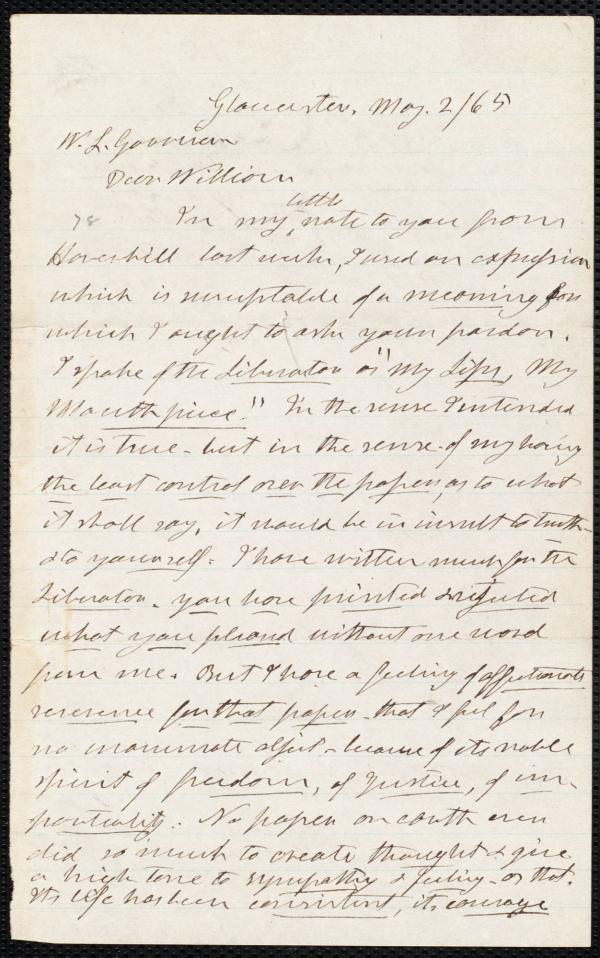 Gloucester, May. 2/65
W. L. Garrison
Dear William
little
78 In my note to you from
Haverhill last week, I used an expression
which is susceptable of a meaning for
which I ought to ask your pardon.
I spake of the Liberator as "My Life, My
Mouth piece." In the sense I intended
it is true - but in the sense of my having
the least control over the paper, as to what
it shall say, it would be an insult to truth
& to yourself. I have written much for the
Liberator. you have printed & rejected
what you pleased without one word
from me. But I have a feeling of affectionate
reverence for that paper - that I feel for
no inanimate object - because of its noble
spirit of freedom, of Justice, of im-
partiality. No paper on earth ever
did so much to create thought & give
a high tone to sympathy & feeling - as that.
Its life has been consistent, its courage